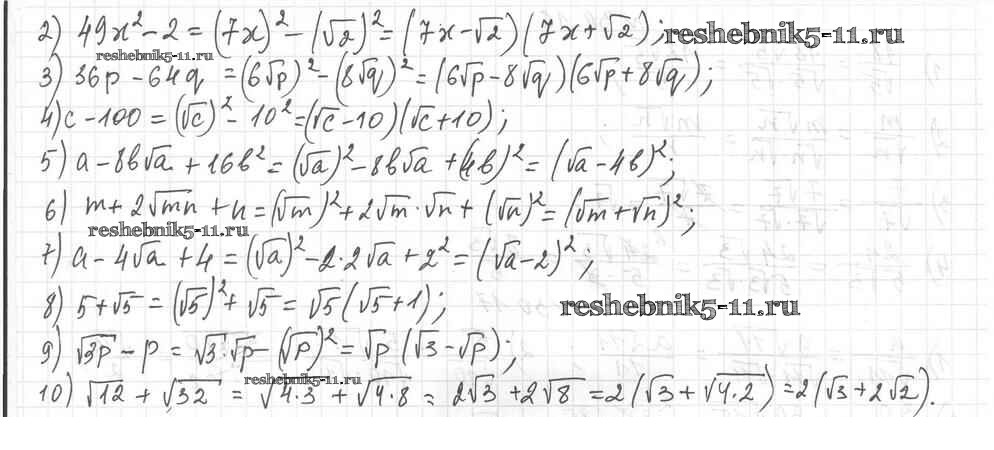 2) 49x² - 2 = (7x)² - (√2)² = (7x - √2)(7x + √2); reshebnik5-11.ru
reshebnik5-11.ru
3) 36p - 64q = (6√p)² - (8√q)² = (6√p - 8√q)(6√p + 8√q);
4) c - 100 = (√c)² - 10² = (√c - 10)(√c + 10);
5) a - 8b√a + 16b² = (√a)² - 8b√a + (4b)² = (√a - 4b)²;
6) m + 2√mn + n = (√m)² + 2√m · √n + (√n)² = (√m + √n)²;
reshebnik5-11.ru
7) a - 4√a + 4 = (√a)² - 2·2√a + 2² = (√a - 2)²;
8) 5 + √5 = (√5)² + √5 = √5(√5 + 1); reshebnik5-11.ru
9) √3p - p = √3·√p - (√p)² = √p(√3 - √p);
reshebnik5-11.ru
10) √12 + √32 = √4·3 + √4·8 = 2√3 + 2√8 = 2(√3 + √4·2) = 2(√3 + 2√2).